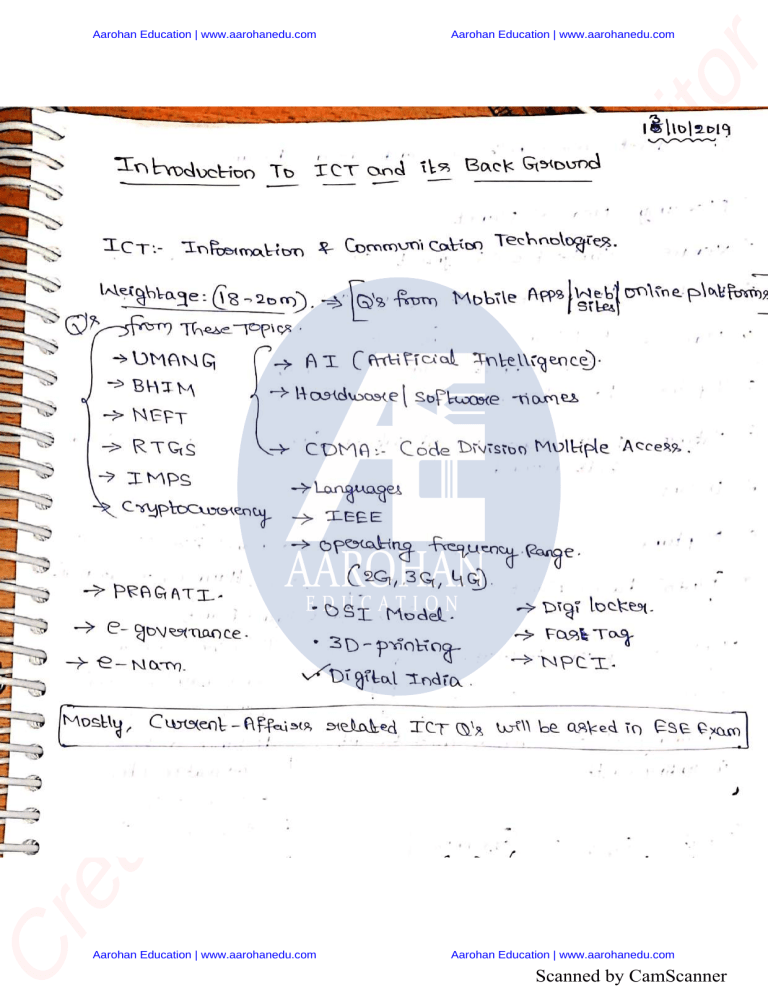 Aarohan Education | www.aarohanedu.com Aarohan Education | www.aarohanedu.com
13/10/2019
Introduction To ICT and its Back Ground
ICT:- Information & Communication Technologies.
Weightage: (18-20m). → [Q's from Mobile Apps | Web Sites | online platforms
Q's from These Topics.
→ UMANG
→ BHIM
→ NEFT
→ RTGS
→ IMPS
→ Cryptocurrency
→ AI (Artificial Intelligence).
→ Hardware | Software names
→ CDMA:- Code Division Multiple Access.
→ Languages
→ IEEE
→ operating frequency Range.
(2G, 3G, 4G).
AAROHAN
EDUCATION
→ PRAGATI.
→ e-governance.
→ e-Nam.
• OSI Model.
• 3D-printing
✓ Digital India.
→ Digi locker.
→ Fast Tag
→ NPCI.
Mostly, Current-Affairs related ICT Q's will be asked in ESE Exam
Aarohan Education | www.aarohanedu.com Aarohan Education | www.aarohanedu.com
Scanned by CamScanner